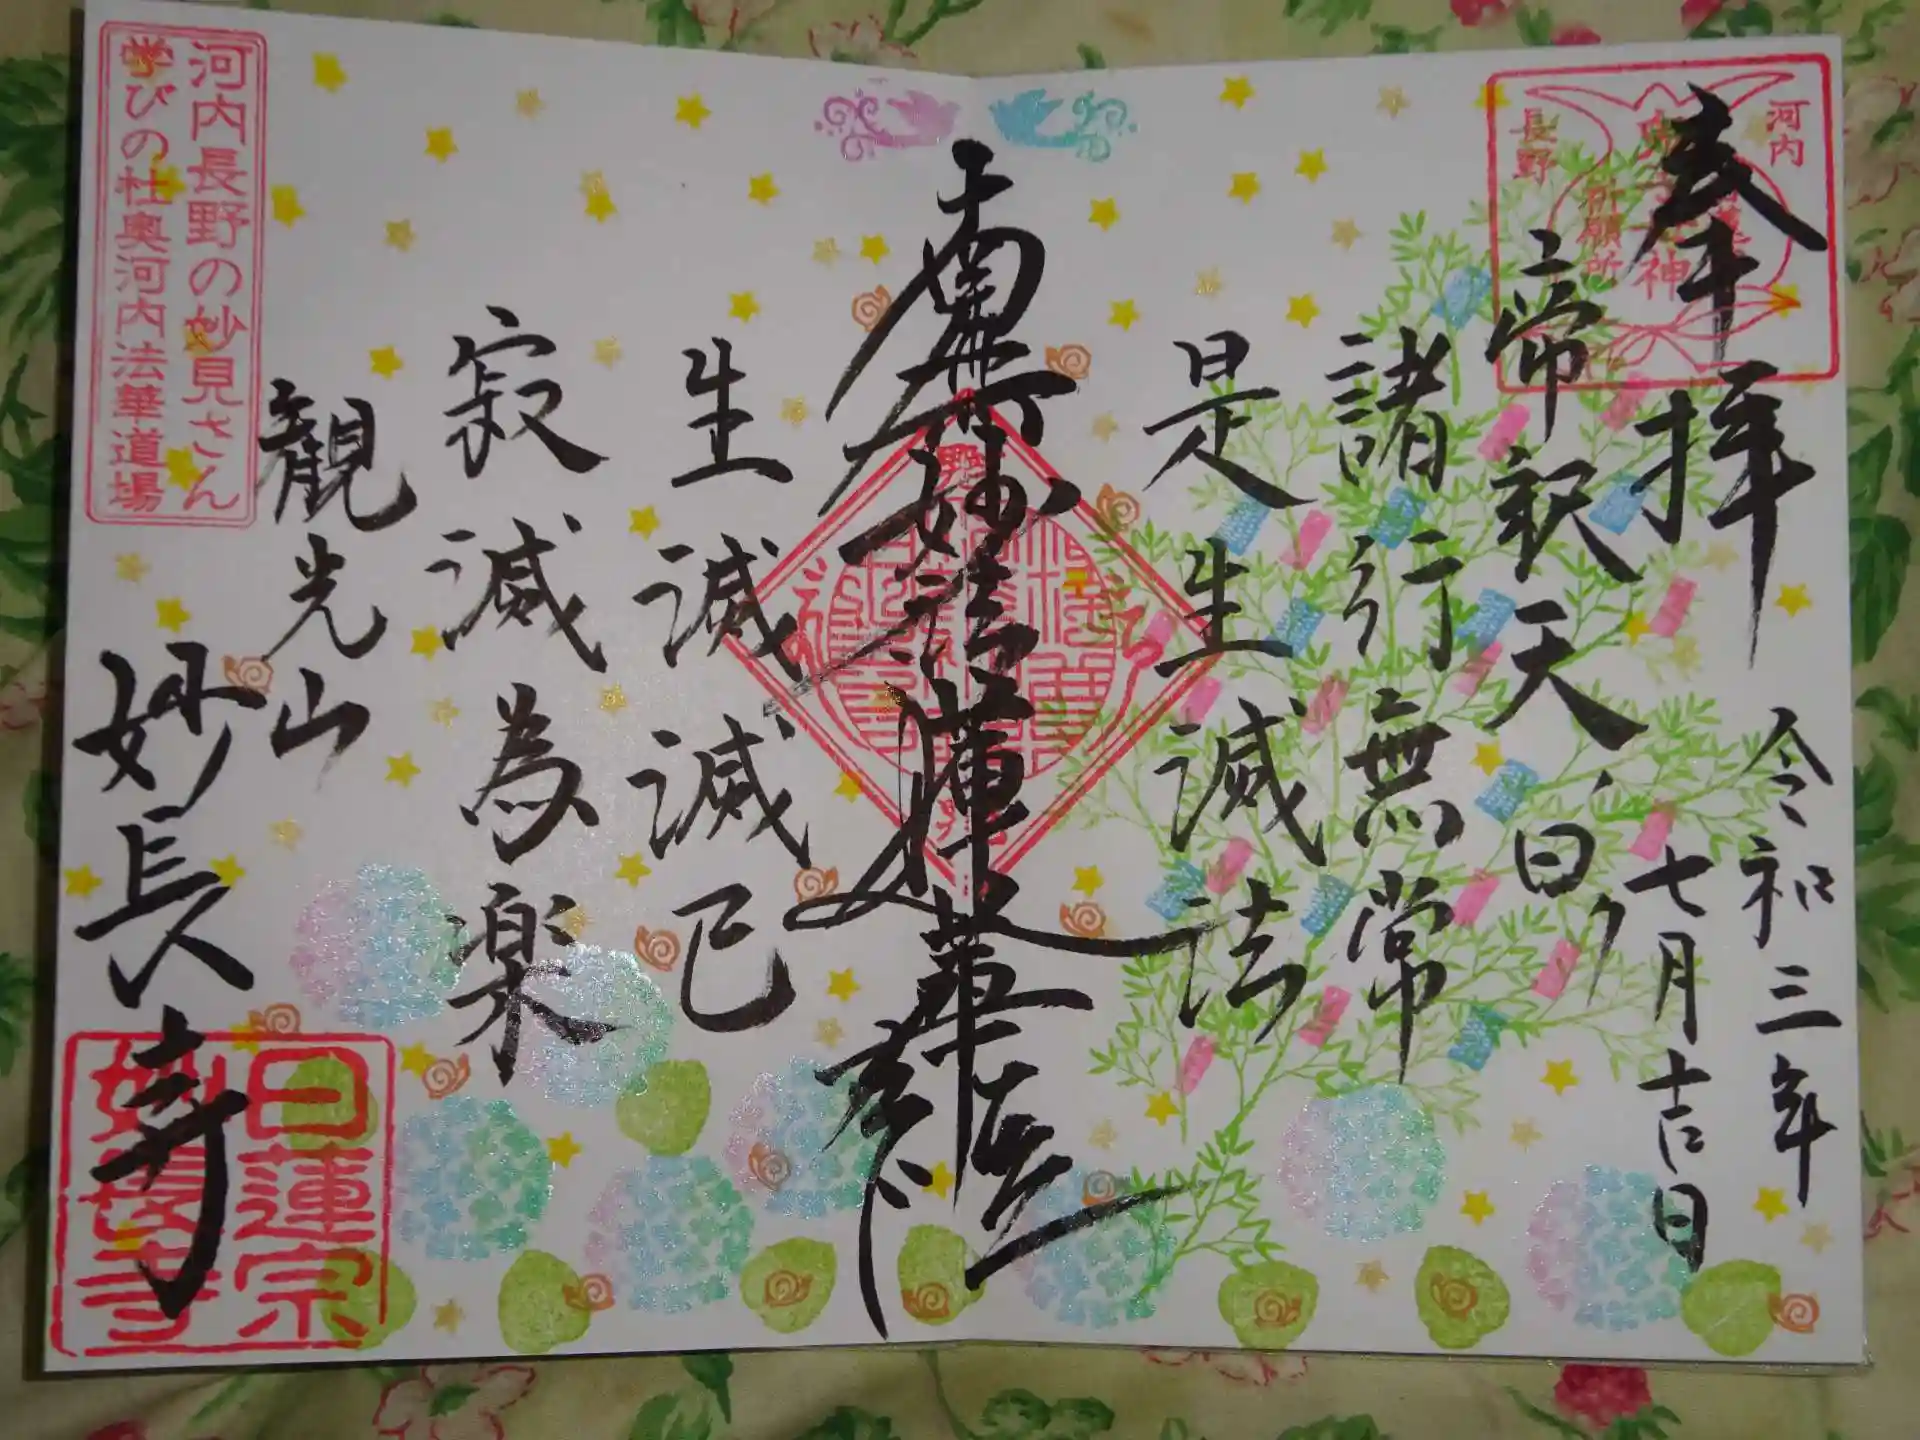 河内
長野
祈願所
奉拝
令和三年
七月吉日
帝釈天曰ク
諸行無常
是生滅法
南無妙法蓮華経
生滅滅已
寂滅為楽
観光山
妙長寺
河内長野の妙見さん
学びの杜奥河内法華道場
日蓮宗
妙長寺